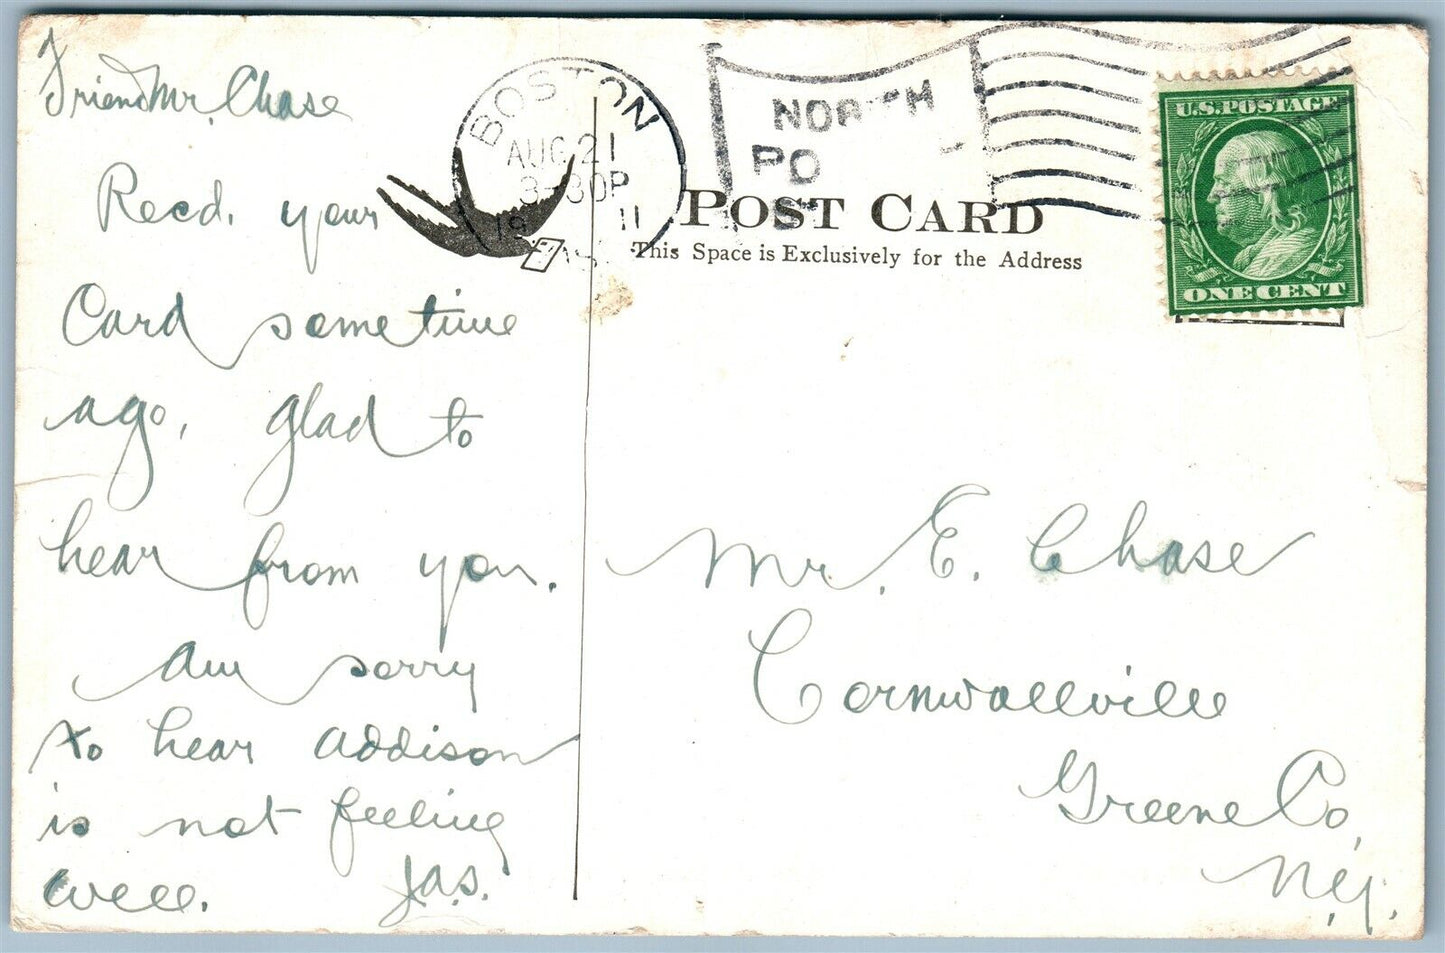 Friend Mr. Chase
Recd. your
Card sometime
ago, glad to
hear from you.
Am sorry
to hear Addison
is not feeling
well. Jas.
BOSTON
AUG 21
3-30P
19 11
MASS.
NORTH
PO
POST CARD
This Space is Exclusively for the Address
U.S. POSTAGE
ONE CENT
Mr. E. Chase
Cornwallville
Greene Co.
N.Y.